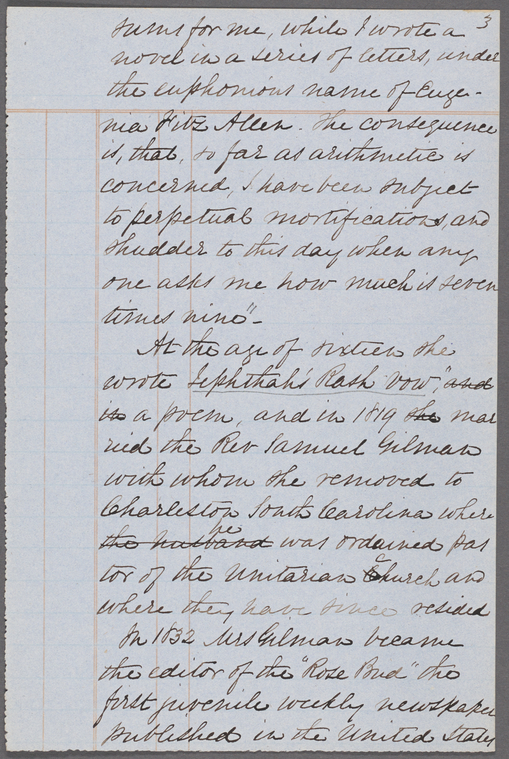 3
sums for me, while I wrote a
novel in a series of letters, under
the euphonious name of Euge-
nia Fitz Allen. The consequence
is, that, so far as arithmetic is
concerned, I have been subject
to perpetual mortifications, and
shudder to this day when any
one asks me how much is seven
times nine"-
At the age of sixteen she
wrote "Jephthah's Rash Vow", and
in a poem, and in 1819 she mar
ried the Rev Samuel Gilman
with whom she removed to
Charleston South Carolina where
he
the husband was ordained pas
tor of the Unitarian Church and
where they have since resided
In 1832 Mrs Gilman became
the editor of the "Rose Bud" the
first juvenile weekly newspaper
published in the United States